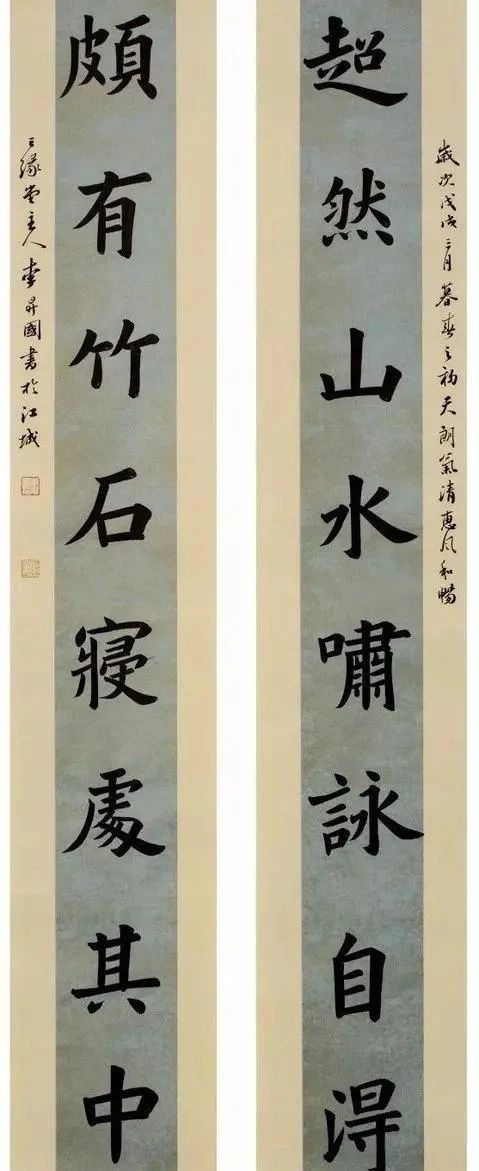 歲次戊戌三月暮春之初天朗氣清惠風和暢
超然山水嘯詠自得
頗有竹石寢處其中
三緣堂主人李昇國書於江城